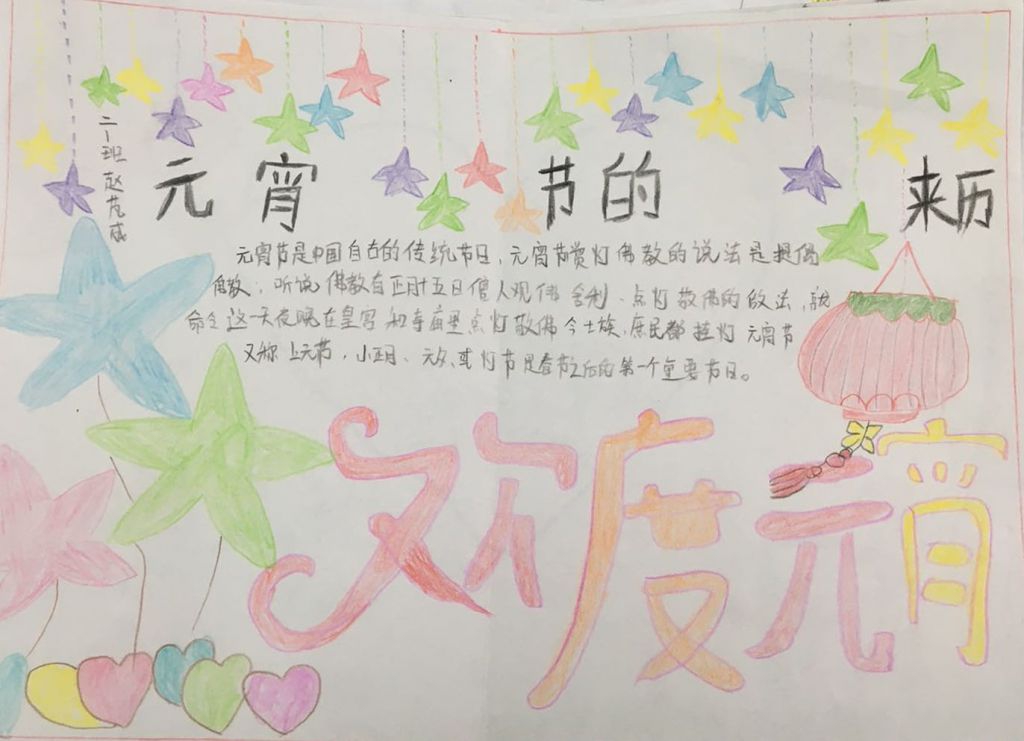 元宵节的来历
二一班赵芃成
元宵节是中国自古的传统节日，元宵节赏灯佛教的说法是提倡
佛教，听说佛教有正月十五日僧人观佛舍利、点灯敬佛的做法，就
命令这一天夜晚在皇宫和寺庙里点灯敬佛令士族、庶民都挂灯元宵节
又称上元节，小正月、元夕、或灯节是春节之后的第一个重要节日。
欢度元宵